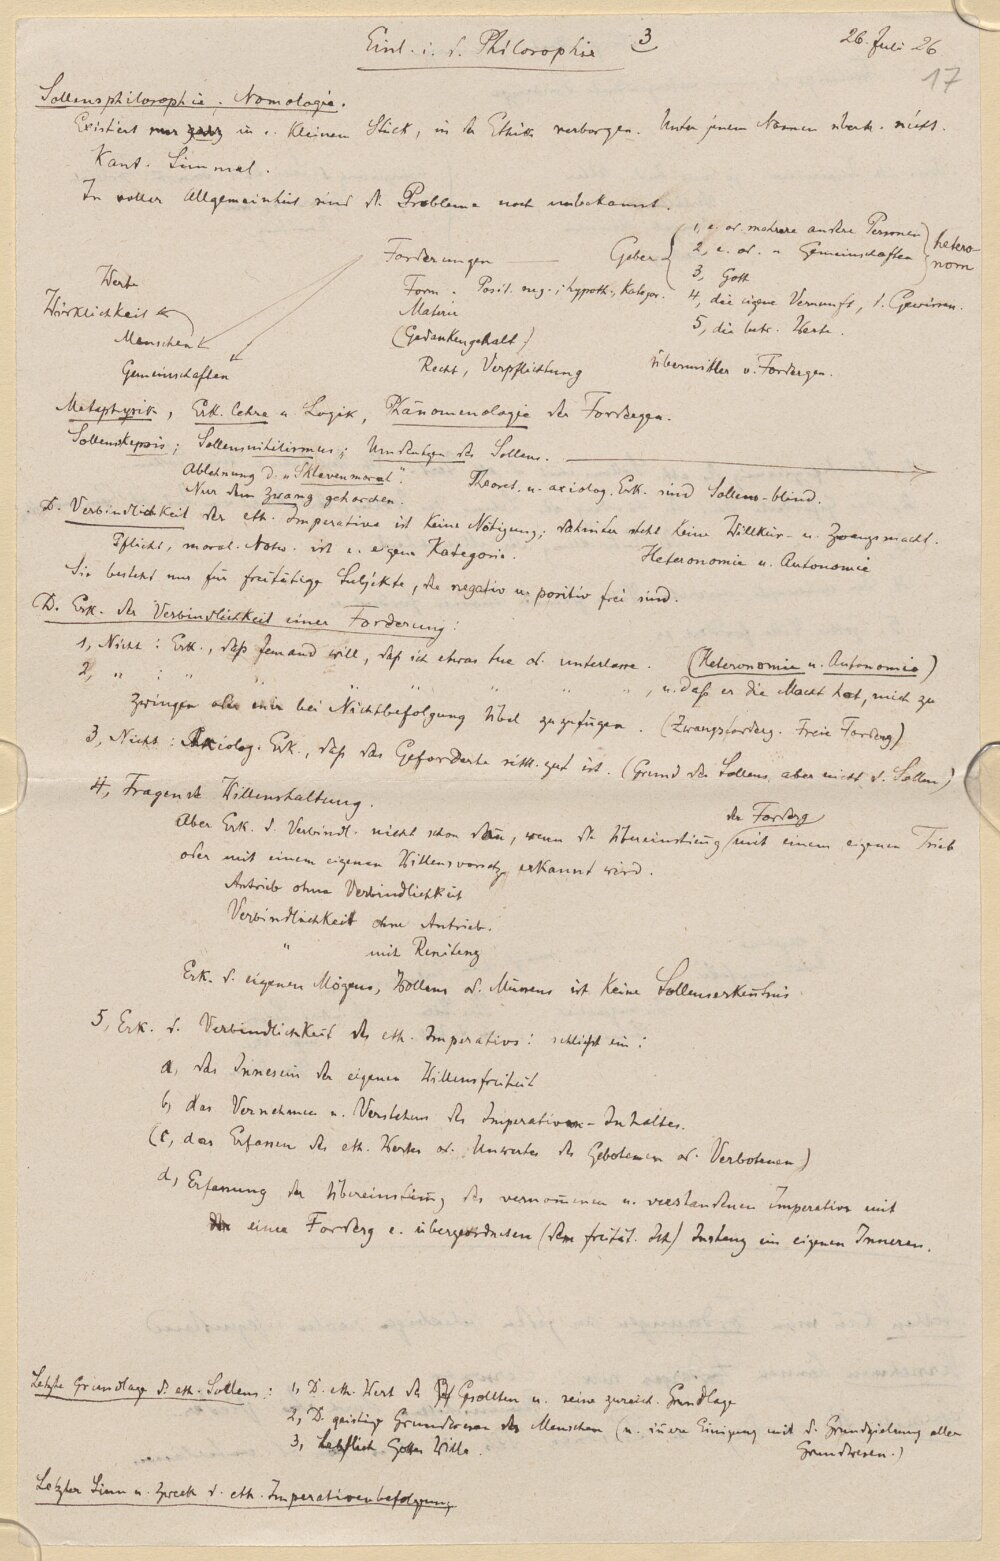 Einl. i. d. Philosophie 3 26. Juli 26
17
Sollensphilosophie. Nomologie.
Existiert nur ganz in e. kleinen Stück, in der Ethik verborgen. Unter jenem Namen überh. nicht.
Kant. Simmel.
In voller Allgemeinheit sind d. Probleme noch unbekannt.
Forderungen — Geber
1, e. od. mehrere andere Personen
2, e. od. " Gemeinschaften
3, Gott
heteronom
4, die eigene Vernunft, d. Gewissen.
5, die betr. Werte.
Werte
Wirklichkeit
Menschen
Gemeinschaften
Form. Posit. neg.; hypoth., kategor.
Materie
(Gedankengehalt)
Recht, Verpflichtung
Übermittler v. Fordergen.
Metaphysik, Erk. lehre u. Logik, Phänomenologie der Fordergen.
Sollensskepsis; Sollensnihilismus; Umdeutgen des Sollens.
Ablehnung d. „Sklavenmoral".
Nur dem Zwang gehorchen.
Theoret. u. axiolog. Erk. sind Sollens-blind.
D. Verbindlichkeit der eth. Imperative ist keine Nötigung; dahinter steht keine Willkür- u. Zwangsmacht.
Pflicht, moral. Notw. ist e. eigene Kategorie. Heteronomie u. Autonomie
Sie besteht nur für freitätige Subjekte, die negativ u. positiv frei sind.
D. Erk. der Verbindlichkeit einer Forderung:
1, Nicht: Erk., daß jemand will, daß ich etwas tue od. unterlasse. (Heteronomie u. Autonomie)
2, " : " " " " " " " , u. daß er die Macht hat, mich zu
zwingen oder mir bei Nichtbefolgung Übel zuzufügen. (Zwangsforderg. Freie Forderg)
3, Nicht: Axiolog. Erk., daß das Geforderte sittl. gut ist. (Grund des Sollens, aber nicht d. Sollen)
4, Fragende Willenshaltung.
Aber Erk. d. Verbindl. nicht schon dann, wenn die Übereinstimmg der Forderg mit einem eigenen Trieb
oder mit einem eigenen Willensvorsatz erkannt wird.
Antrieb ohne Verbindlichkeit
Verbindlichkeit ohne Antrieb.
" mit Renitenz
Erk. d. eigenen Mögens, Wollens od. Müssens ist keine Sollenserkenntnis
5, Erk. d. Verbindlichkeit des eth. Imperativs: schließt ein:
a, das Innesein der eigenen Willensfreiheit
b, das Vernehmen u. Verstehen des Imperativ-Inhaltes.
(c, das Erfassen des eth. Wertes od. Unwertes des Gebotenen od. Verbotenen)
d, Erfassung der Übereinstimmg des vernommenen u. verstandenen Imperativs mit
einer Forderg e. übergeordneten (dem freität. Ich) Instanz im eigenen Inneren.
Letzte Grundlage d. eth. Sollens: 1, D. eth. Wert des Gesollten u. seine zureich. Grundlage
2, D. geistige Grundwesen des Menschen (u. innere Einigung mit d. Grundzielung allen
Grundwesen.)
3, Letztlich Gottes Wille.
Letzter Sinn u. Zweck d. eth. Imperativenbefolgung